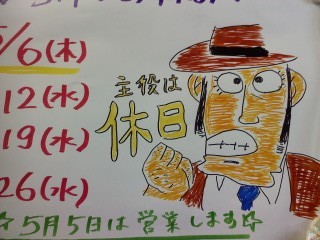 5/6(木)
12(水)
19(水)
26(水)
主役は
休日
☆5月5日は営業します☆